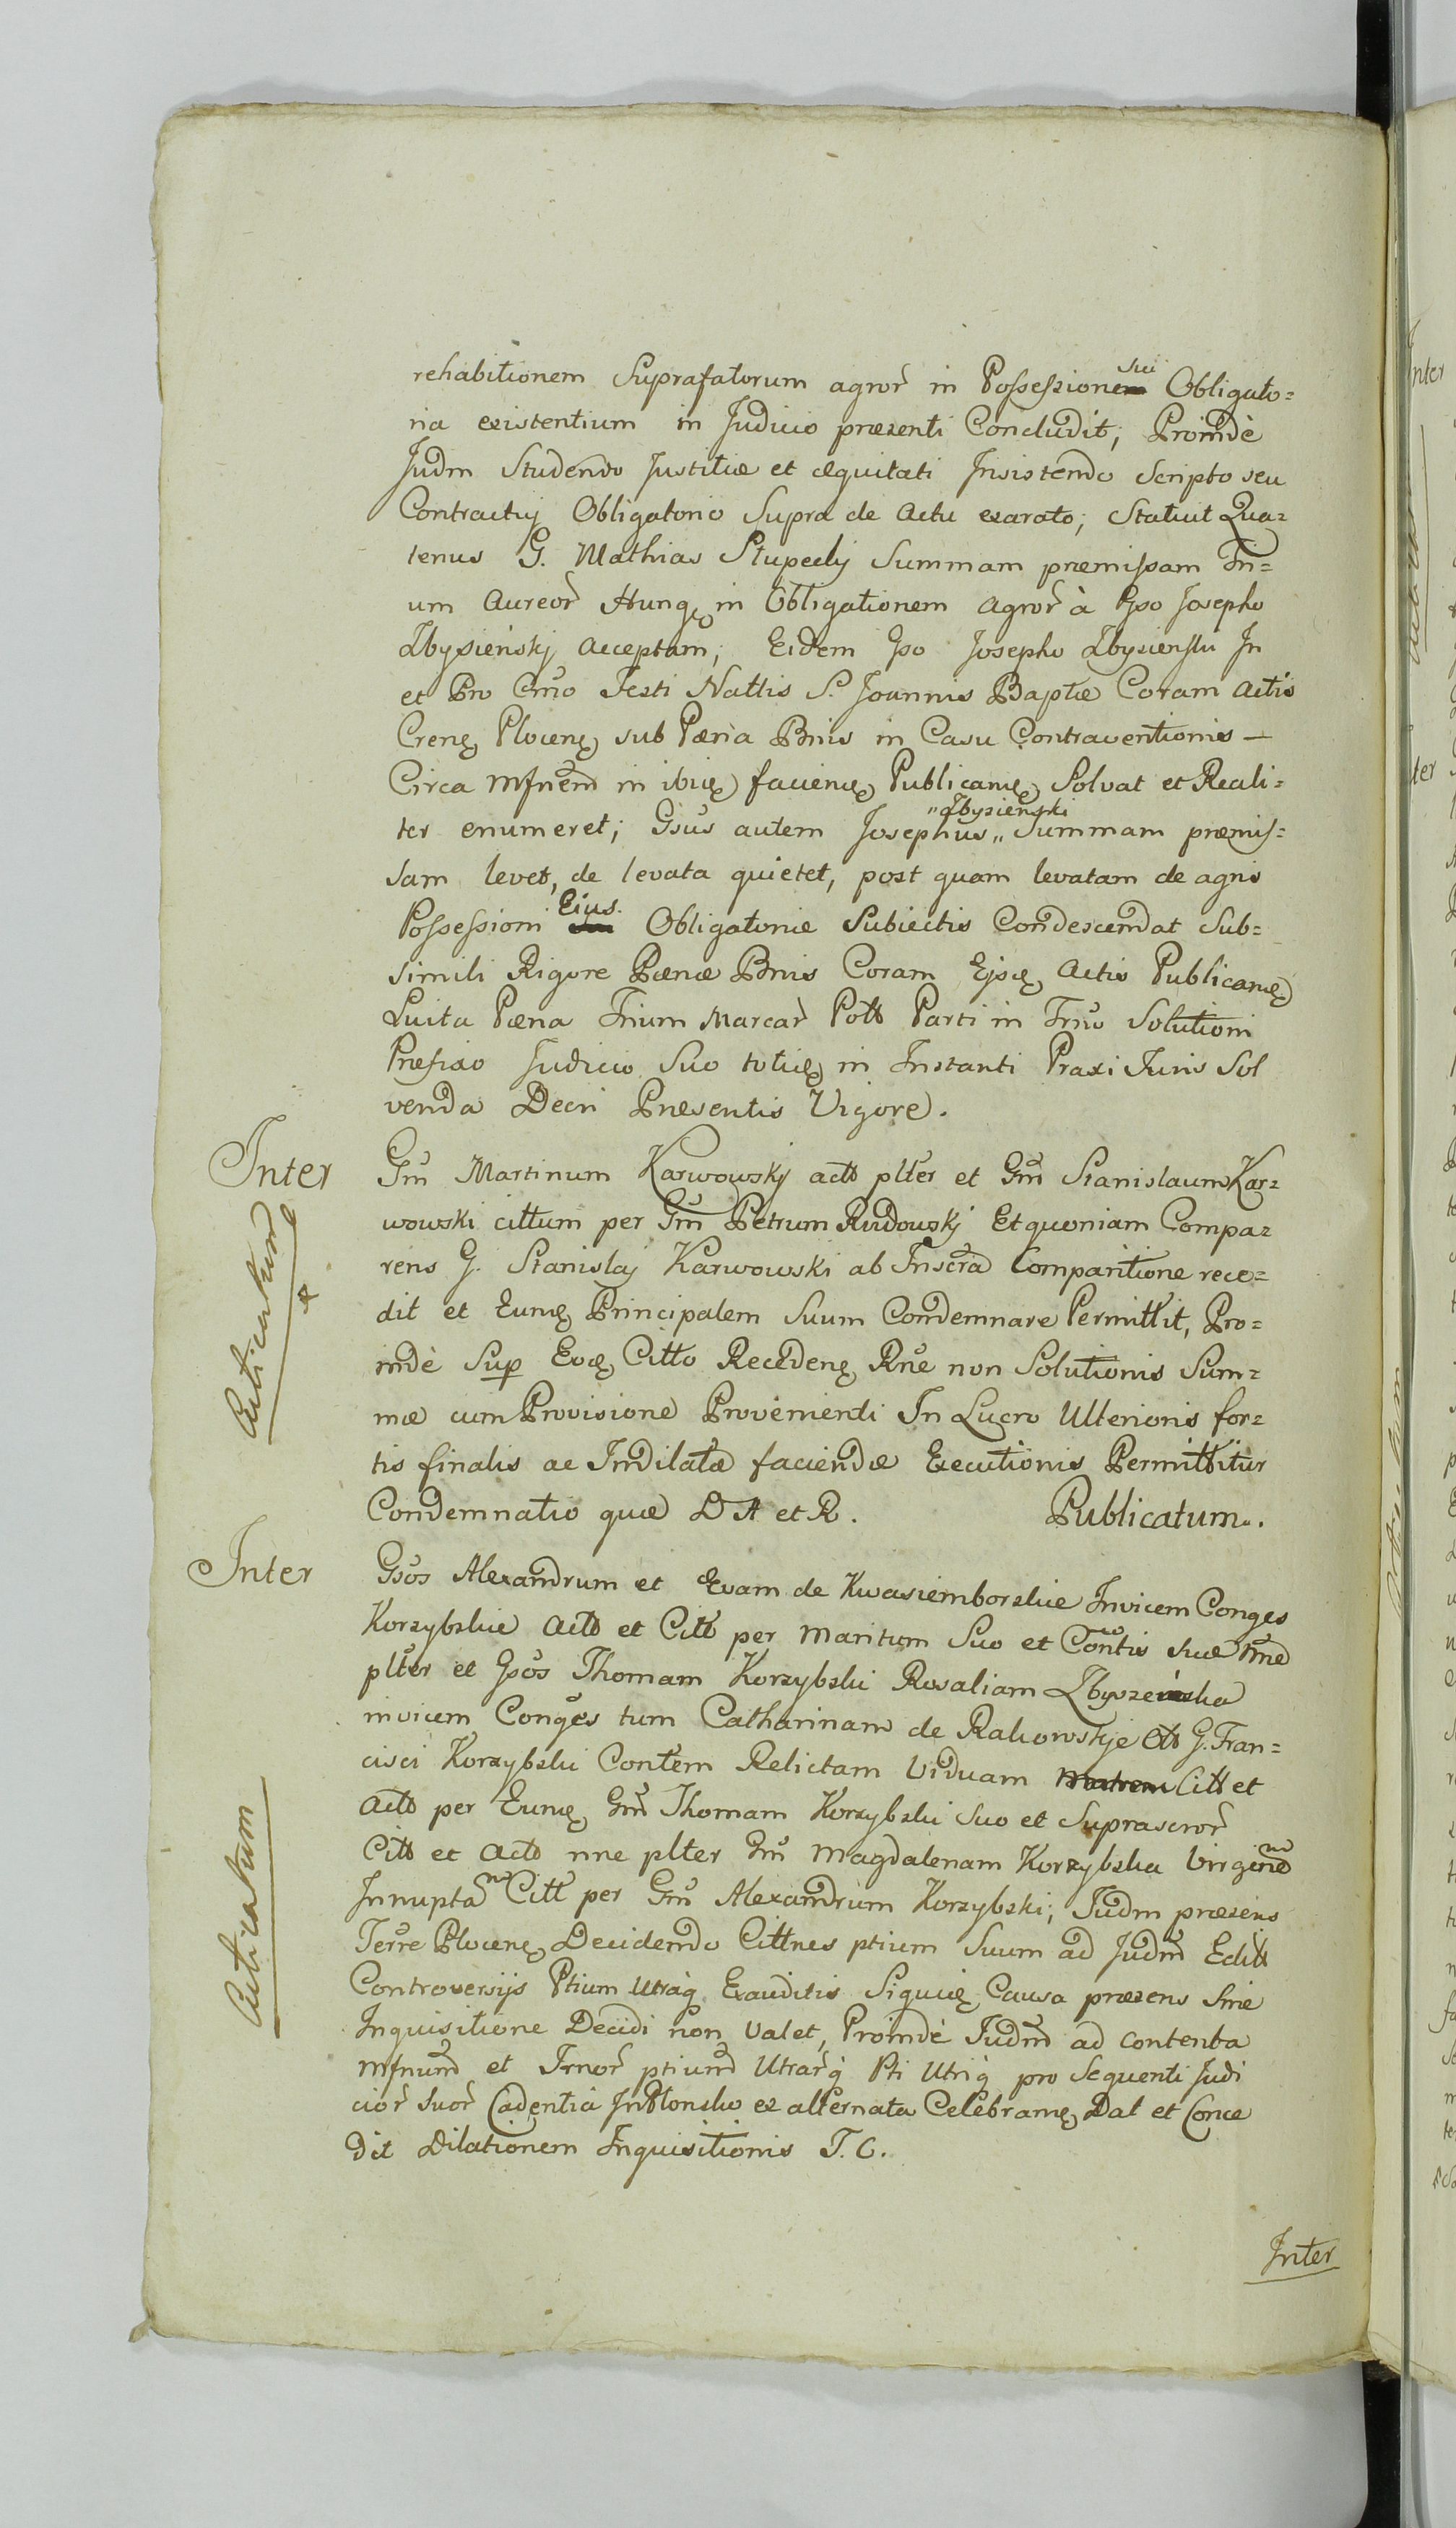 rehabitionem Suprafatorum agror in Possessionem sui Obligato=
ria existentium in Judicio præsenti Concludit, Proindè
Judm Studendo Justitiæ et æquitati Insistendo Scripto seu
Contractuj Obligatorio Supra de Actu exarato, Statuit Qua=
tenus G. Mathias Slupecky Summam præmissam Tri=
um Aureor Hung in Obligationem agror à Gso Josepho
Zbysieńskj acceptam, Eidem Gso Josepho Zbysienski In
et Pro Crno Festi Natlis S. Joannis Baptæ Coram Actis
Crenę Plocenę sub Pæna Bnis in Casu Contraventionis —
Circa Mfnem in ibię facienę Publicanę Solvat et Reali=
ter enumeret; Gsus autem Josephus „ „Zbysienski Summam præmis=
sam levet, de levata quietet, post quam levatam de agris
Possessioni Eius. Obligatoriæ Subiectis Condescendat Sub=
simili Rigore Pænæ Bnis Coram Ejsdę Actis Publicanę
Luita Pæna Trium Marcar Pott Parti in Trno Solutioni
Præfixo Judicio Suo totię in Instanti Praxi Juris Sol
venda Decri Præsentis Vigore.
Inter Gm Martinum Karwowskj actt plter et Gm Stanislaum Kar=
wowski cittum per Gm Petrum Rudowskj Et quoniam Compa=
rens G. Stanislaj Karwowski ab Inscra Comparitione rece=
dit et Eumę Principalem Suum Condemnare Permittit, Pro=
indè Sup Eoę Citto Recedenę Rne non Solutionis Sum=
mæ cum Provisione Provenienti In Lucro Ulterioris for=
tis finalis ac Indilatæ faciendæ Executionis Permittitur
Condemnatio quæ D A et R. Publicatum.
Acticatum
Inter Gsos Alexandrum et Evam de Kwasiemborskie Invicem Conges
Korzybskie Actt et Citt per Maritum Suo et Contis suæ nne
plter et Gsos Thomam Korzybski Rosaliam Zbyszeńska
invicem Conges tum Catharinam de Rakowskje Ott G. Fran=
cisci Korzybski Contem Relictam Viduam Matrem Citt et
Actt per Eumę Gm Thomam Korzybski Suo et Suprascror
Citt et Actt nne plter Gm Magdalenam Korzybska Virginem
Innuptam Citt per Gm Alexandrum Korzybski; Judm præsens
Terre Plocenę Decidendo Cittnes ptium Suum ad Judm Editt
Controversijs Ptium Utraq Exauditis Siquię Causa præsens Sine
Inquisitione Decidi non Valet, Proindè Judm ad contenta
Mfnum et Trnor ptium Utrarq Pti Utriq pro Sequenti Judi
cior Suor Cadentia In Plonsko ex alternata Celebranę Dat et Conce
dit Dilationem Inquisitionis T. C.
Acticatum
Inter